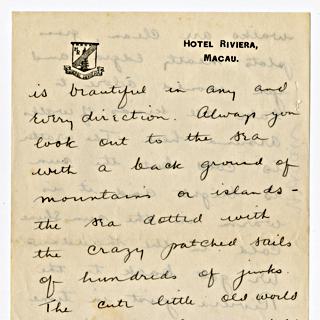 HOTEL RIVIERA,
MACAU.
is beautiful in any and
every direction. Always you
look out to the sea
with a back ground of
mountains or islands -
the sea dotted with
the crazy patched sails
of hundreds of junks.
The cute little old world